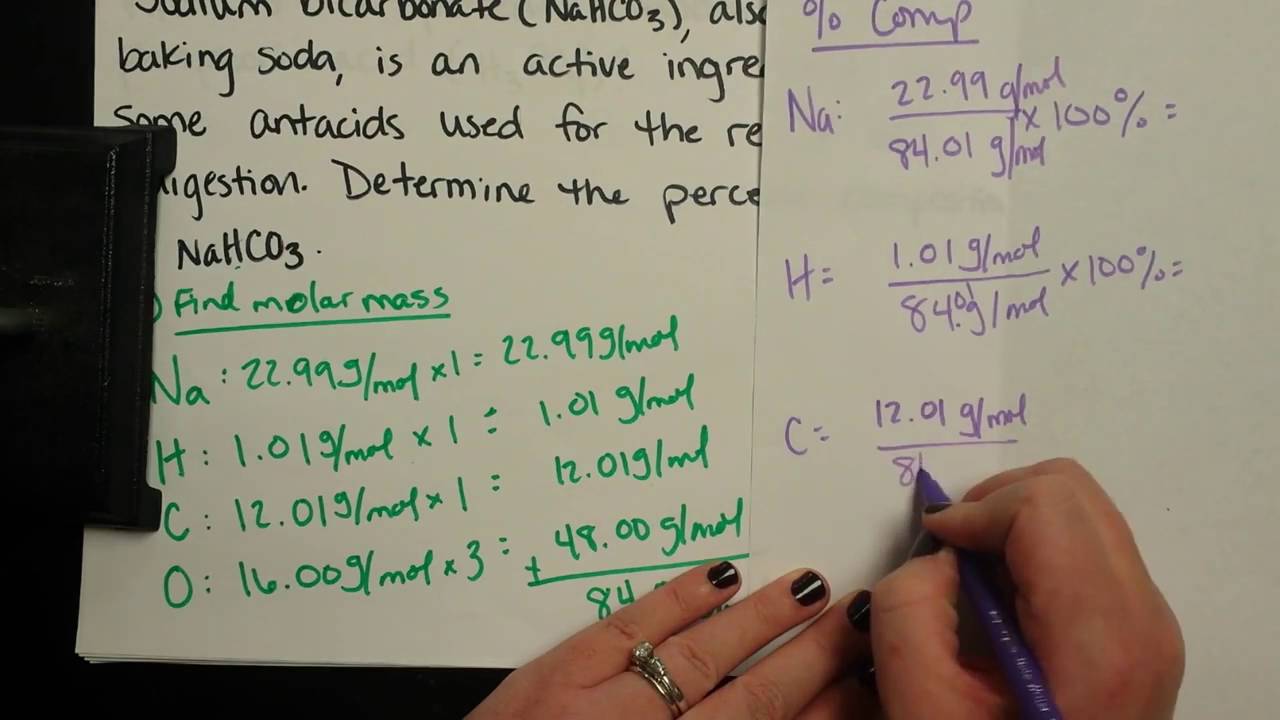 Sodium Bicarbonate (NaHCO3), also
baking soda, is an active ingre
Some antacids used for the re
digestion. Determine the perce
NaHCO3.
) Find molar mass
Na: 22.99g/mol x1 = 22.99g/mol
H: 1.01g/mol x 1 = 1.01 g/mol
C: 12.01g/mol x 1 = 12.01g/mol
O: 16.00g/mol x 3 = + 48.00 g/mol
84
% Comp
Na: 22.99 g/mol
84.01 g/mol x 100% =
H = 1.01g/mol
84.01g/mol x 100% =
C = 12.01 g/mol
8